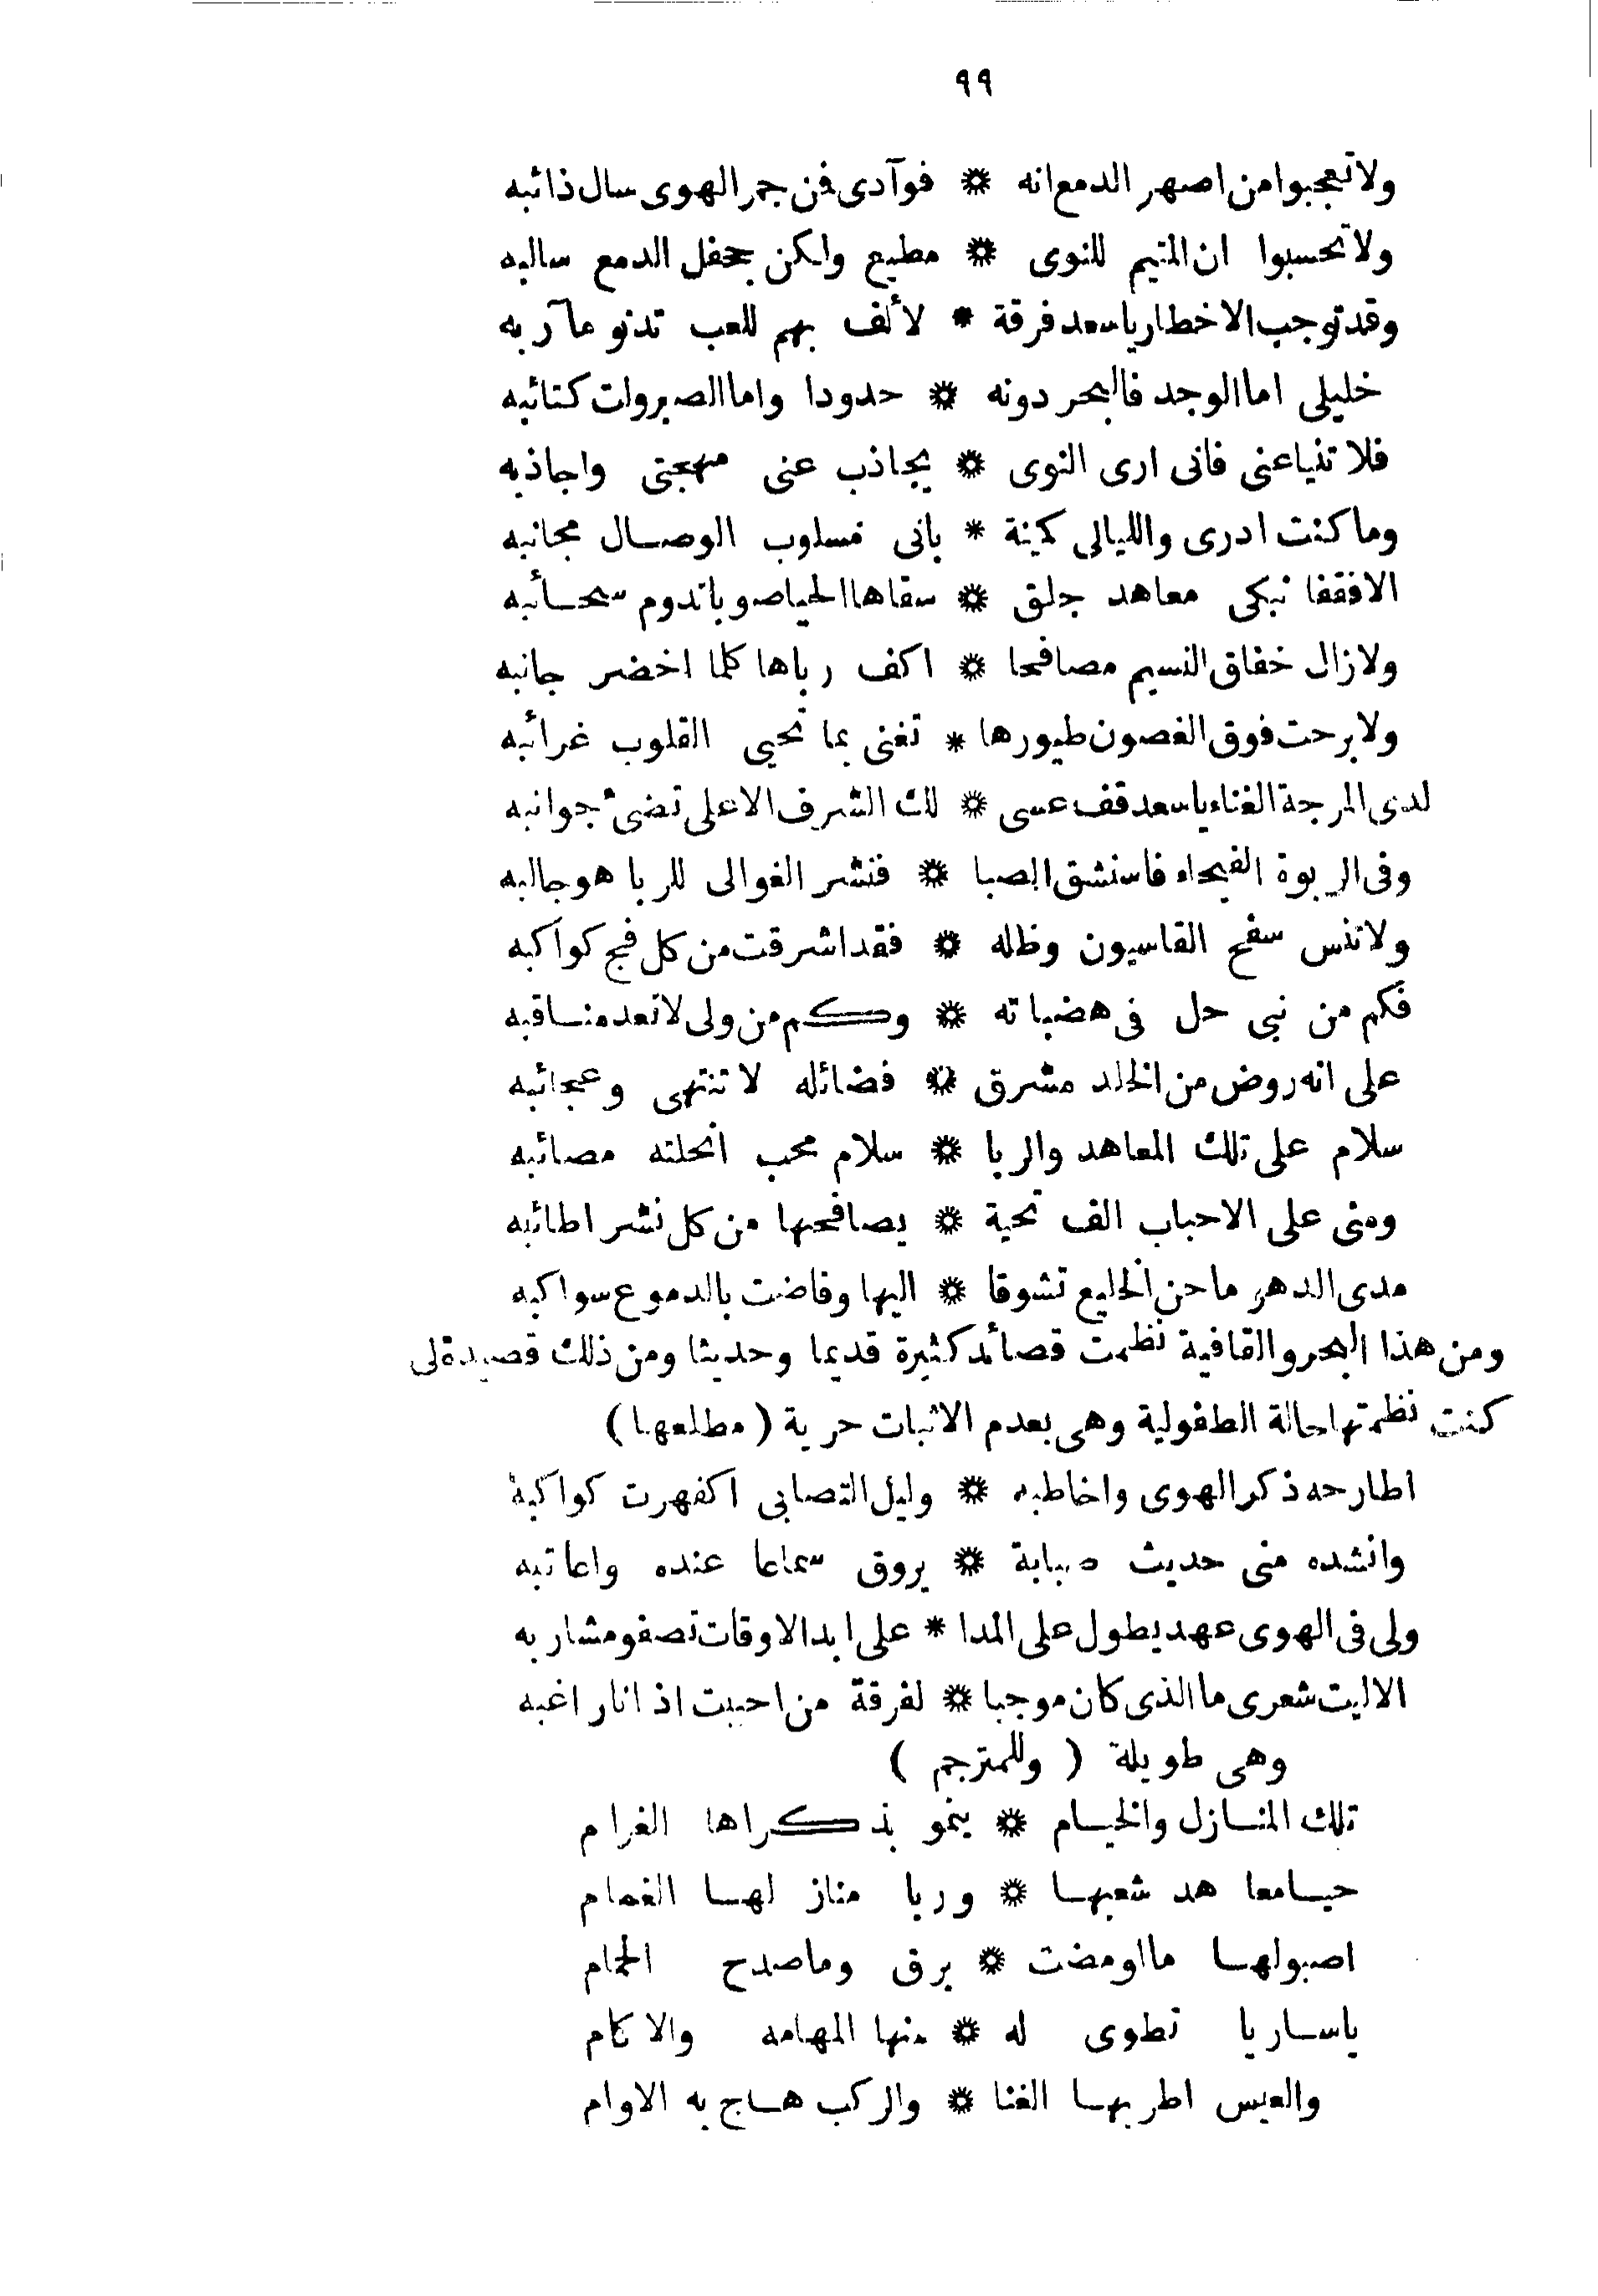 ٩٩
ولا تعجبوا من اصهر الدمع انه * فوآدى فن جمر الهوى سال ذائبه
ولا تحسبوا ان المتيم للنوى * مطيع ولكن جحفل الدمع سالبه
وقد توجب الاخطار يا سعد فرقة * لألف بهم للعب تدنو مآربه
خليلى اما الوجد فالبحر دونه * حدودا واما الصبر ولت كتائبه
فلا تنيا عنى فانى ارى النوى * يجاذب عنى مهجتى واجاذبه
وما كنت ادرى والليالى كمينة * بانى مسلوب الوصال مجانبه
الا فقفا نبكى معاهد جلق * سقاها الحيا صوبا تدوم سحائبه
ولا زال خفاق النسيم مصافحا * اكف رباها كلما اخضر جانبه
ولا برحت فوق الغصون طيورها * تغنى بما تحيى القلوب غرائبه
لدى المرجة الغناء يا سعد قف عسى * لك الشرف الاعلى تضئ جوانبه
وفى الربوة الفيحاء فاستنشق الصبا * فنشر الغوالى للربا هو جالبه
ولا تنس سفح القاسيون وظله * فقد اشرقت من كل فج كواكبه
فكم من نبى حل فى هضباته * وكم من ولى لا تعد مناقبه
على انه روض من الخلد مشرق * فضائله لا تنتهى وعجائبه
سلام على تلك المعاهد والربا * سلام محب انحلته مصائبه
ومنى على الاحباب الف تحية * يصافحها من كل نشر اطائبه
مدى الدهر ما حن الخليع تشوقا * اليها وفاضت بالدموع سواكبه
ومن هذا البحر والقافية نظمت قصائد كثيرة قديما وحديثا ومن ذلك قصيدة لى
كنت نظمتها حالة الطفولية وهى بعدم الاثبات حرية (مطلعها)
اطارحه ذكر الهوى واخاطبه * وليل التصابى اكفهرت كواكبه
وانشده منى حديث صبابة * يروق سماعا عنده واعاتبه
ولى فى الهوى عهد يطول على المدا * على ابد الاوقات تصفو مشاربه
الا ليت شعرى ما الذى كان موجبا * لفرقة من احببت اذ انا راغبه
وهى طويلة (وللمترجم)
تلك المنازل والخيام * ينمو بذكراها الغرام
حيا معاهد شعبها * وربا منازلها الغمام
اصبو لها ما اومضت * برق وما صدح الحمام
يا ساريا تطوى له * منها المهامه والاكام
والعيس اطربها الغنا * والركب هاج به الاوام